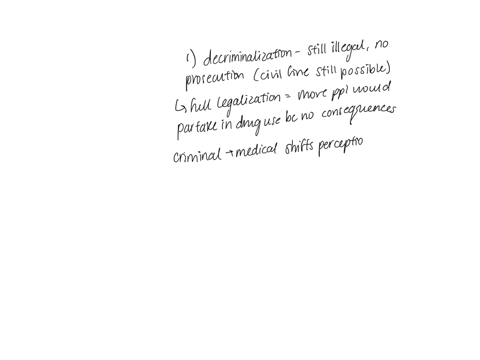 1) decriminalization - still illegal, no
prosecution (civil fine still possible)
↳ full legalization = more ppl would
partake in drug use bc no consequences
criminal → medical shifts perceptio